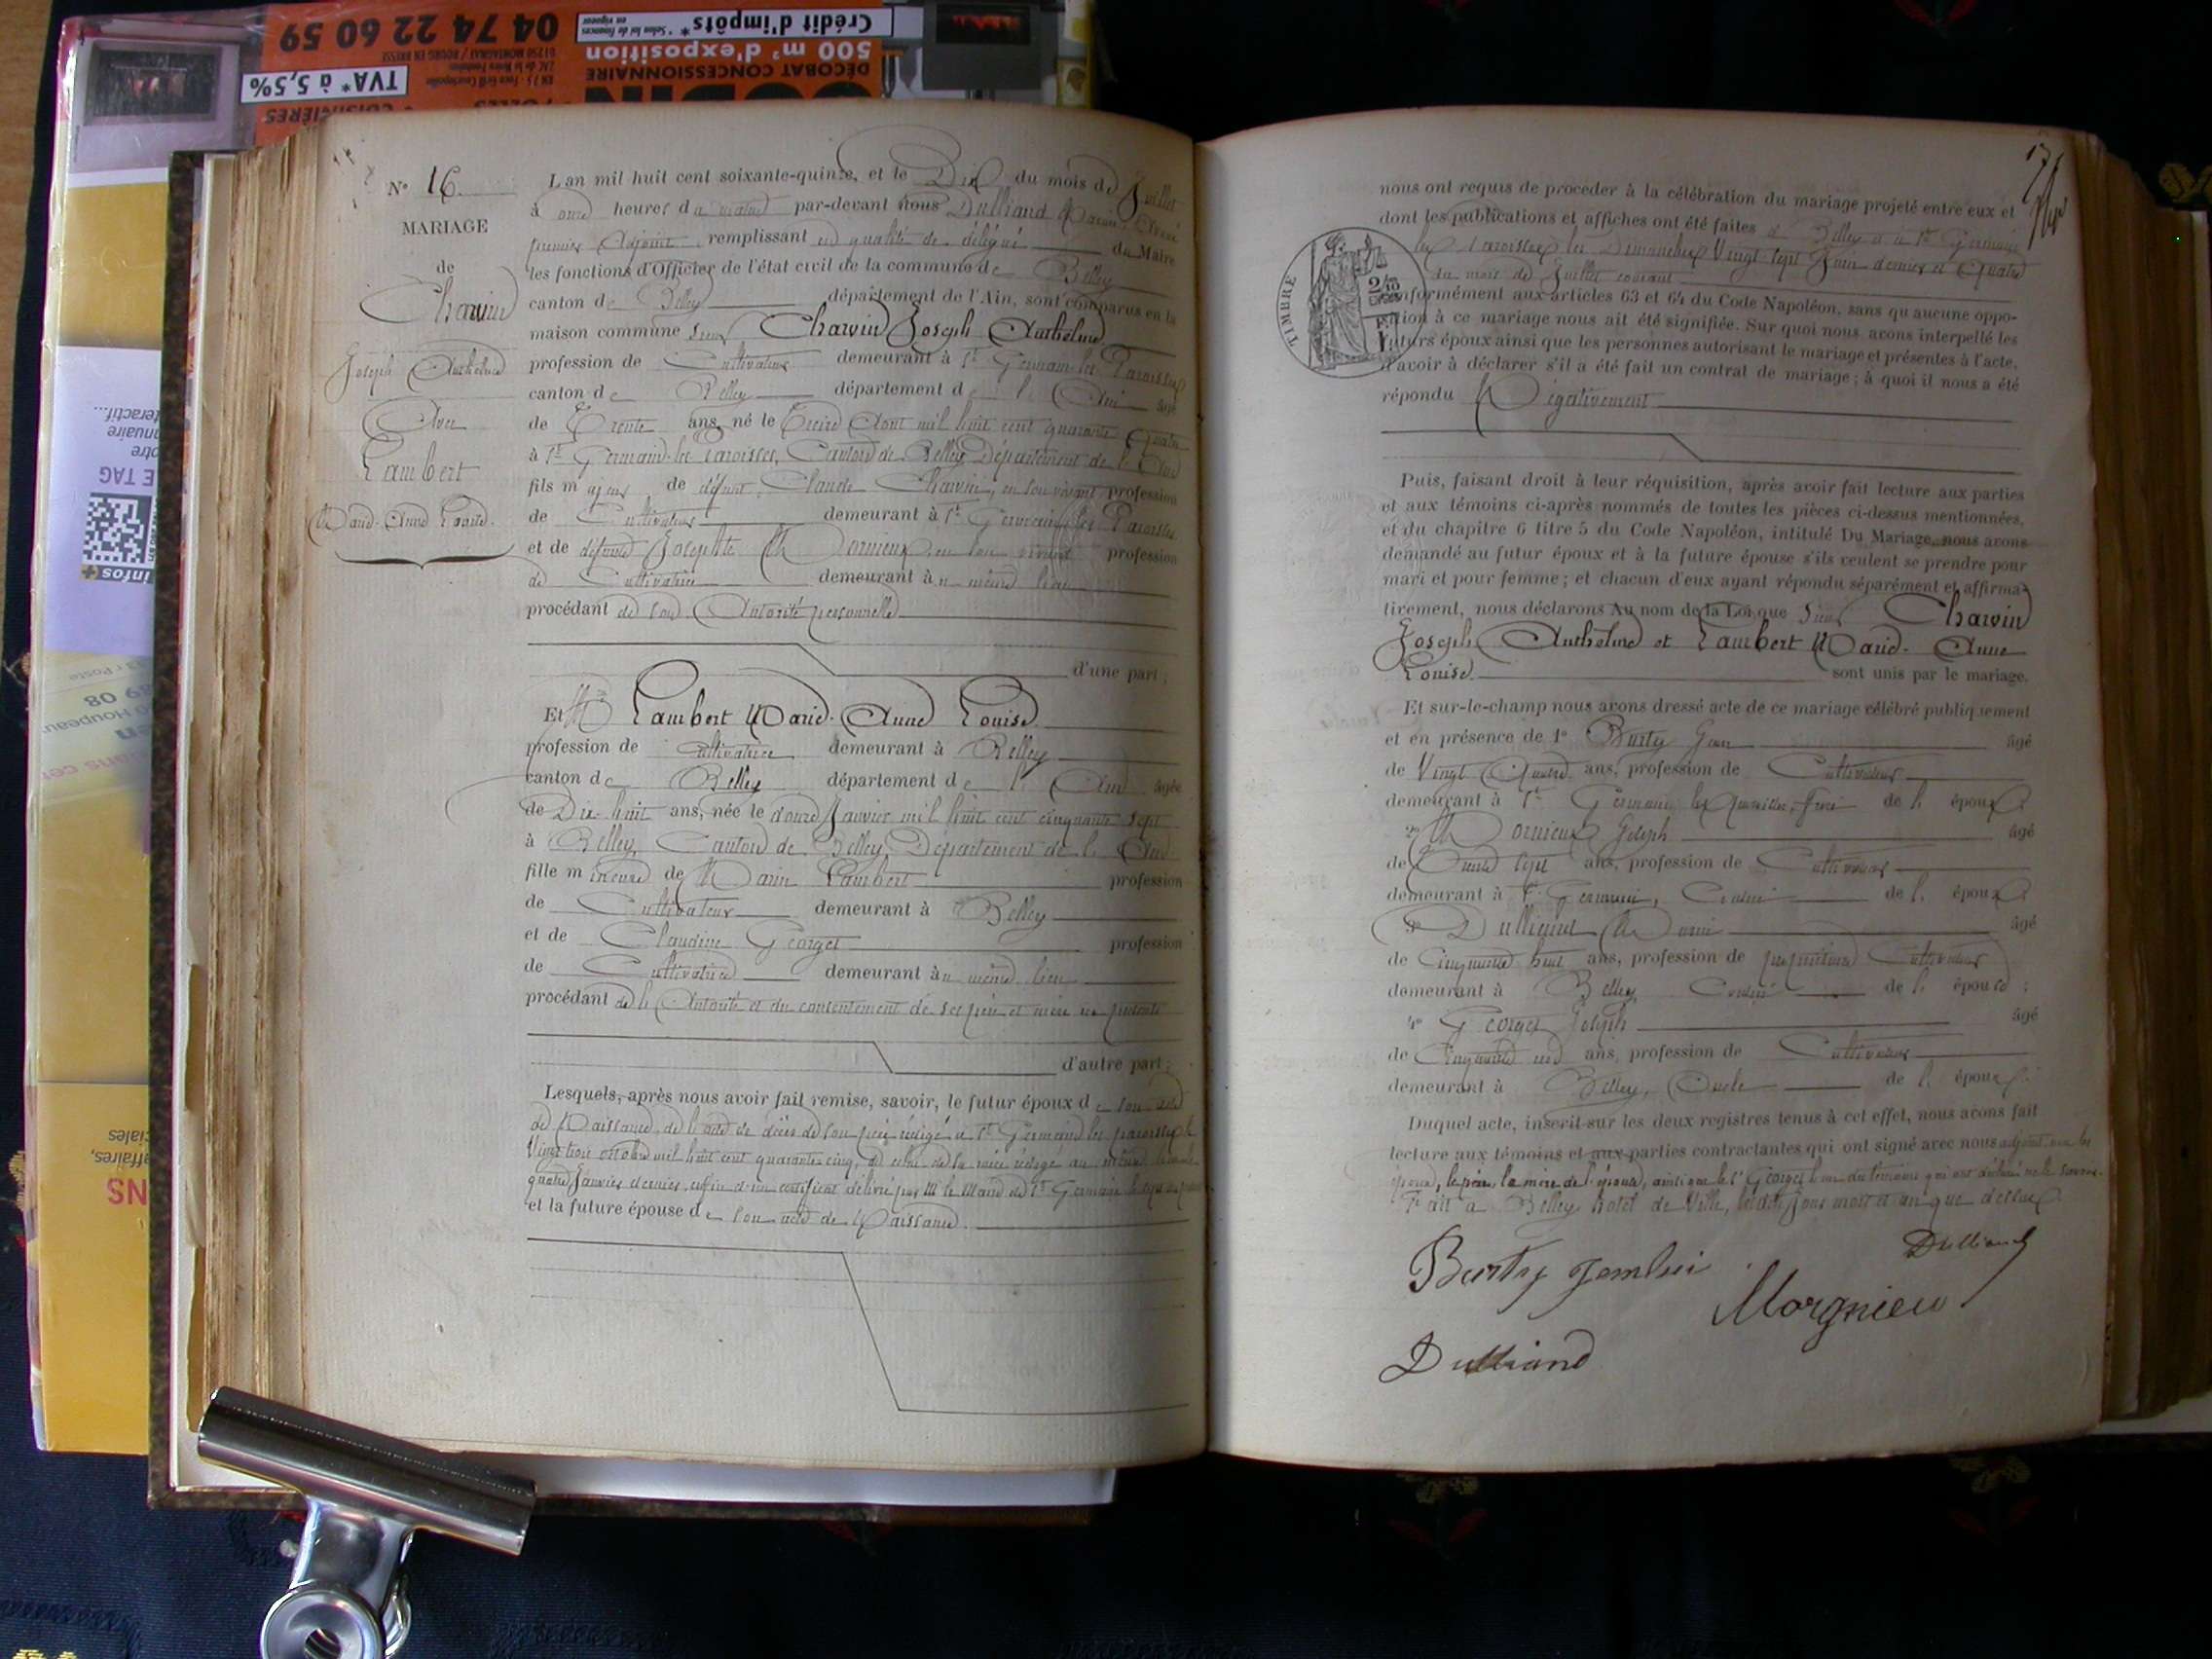 04 74 22 60 59
Crédit d'impôts*
* Selon loi de finances en vigueur
500 m² d'exposition
DÉCOBAT CONCESSIONNAIRE
TVA* à 5,5%
N° 16
MARIAGE
de
Charvin
Joseph Anthelme
Avec
Lambert
Marie-Anne Louise.
L'an mil huit cent soixante-quinze, et le Dix du mois de Juillet
à onze heures du matin par-devant nous Dulliand Marin,
premier Adjoint, remplissant en qualité de délégué du Maire
les fonctions d'Officier de l'état civil de la commune de Belley
canton de Belley département de l'Ain, sont comparus en la
maison commune sieur Charvin Joseph Anthelme
profession de Cultivateur demeurant à St Germain-les-Paroisses
canton de Belley département de l'Ain âgé
de Trente ans, né le Treize Août mil huit cent quarante Quatre
à St Germain-les-Paroisses, Canton de Belley, Département de l'Ain
fils majeur de défunt Claude Charvin, en son vivant profession
de Cultivateur demeurant à St Germain les Paroisses
et de défunte Josephte Mornieux en son vivant profession
de Cultivatrice demeurant au même lieu
procédant de son Autorité personnelle
d'une part;
Et Mlle Lambert Marie-Anne Louise
profession de Cultivatrice demeurant à Belley
canton de Belley département de l'Ain âgée
de Dix-huit ans, née le douze Janvier mil huit cent cinquante sept
à Belley, Canton de Belley, Département de l'Ain
fille mineure de Marin Lambert profession
de Cultivateur demeurant à Belley
et de Claudine Georget profession
de Cultivatrice demeurant au même lieu
procédant de l'Autorité et du consentement de ses père et mère ici présents
d'autre part;
Lesquels, après nous avoir fait remise, savoir, le futur époux de son acte
de Naissance, de l'acte de décès de son père rédigé à St Germain les paroisses le
Vingt trois octobre mil huit cent quarante-cinq, de celui de sa mère rédigé au même lieu le
quatre Janvier dernier, enfin d'un certificat délivré par M le Maire de St Germain
et la future épouse de son acte de Naissance.
17
nous ont requis de procéder à la célébration du mariage projeté entre eux et
dont les publications et affiches ont été faites à Belley et à St Germain
les Paroisses les Dimanches Vingt sept Juin dernier et Quatre
du mois de Juillet courant
TIMBRE
conformément aux articles 63 et 64 du Code Napoléon, sans qu'aucune oppo-
sition à ce mariage nous ait été signifiée. Sur quoi nous avons interpellé les
futurs époux ainsi que les personnes autorisant le mariage et présentes à l'acte,
d'avoir à déclarer s'il a été fait un contrat de mariage; à quoi il nous a été
répondu Négativement
Puis, faisant droit à leur réquisition, après avoir fait lecture aux parties
et aux témoins ci-après nommés de toutes les pièces ci-dessus mentionnées,
et du chapitre 6 titre 5 du Code Napoléon, intitulé Du Mariage, nous avons
demandé au futur époux et à la future épouse s'ils veulent se prendre pour
mari et pour femme; et chacun d'eux ayant répondu séparément et affirma-
tivement, nous déclarons Au nom de la Loi, que sieur Charvin
Joseph Anthelme et Lambert Marie-Anne
Louise. sont unis par le mariage.
Et sur-le-champ nous avons dressé acte de ce mariage célébré publiquement
et en présence de 1° Burty Jean âgé
de Vingt Quatre ans, profession de Cultivateur
demeurant à St Germain les Paroisses, de l'époux
2° Mornieux Joseph âgé
de Trente sept ans, profession de Cultivateur
demeurant à St Germain, Cousin de l'époux
3° Dulliand Marin âgé
de Cinquante huit ans, profession de propriétaire Cultivateur
demeurant à Belley Cousin de l'épouse;
4° Georget Joseph âgé
de Cinquante ans, profession de Cultivateur
demeurant à Belley, Oncle de l'épouse.
Duquel acte, inscrit sur les deux registres tenus à cet effet, nous avons fait
lecture aux témoins et aux parties contractantes qui ont signé avec nous
époux, le père, la mère de l'épouse, ainsi que le sr Georget l'un des témoins qui ont déclaré ne le savoir.
Fait à Belley hôtel de Ville, lesdits Jour mois et an que dessus
Dulliand
Burty
Morgnieu
Dulliand